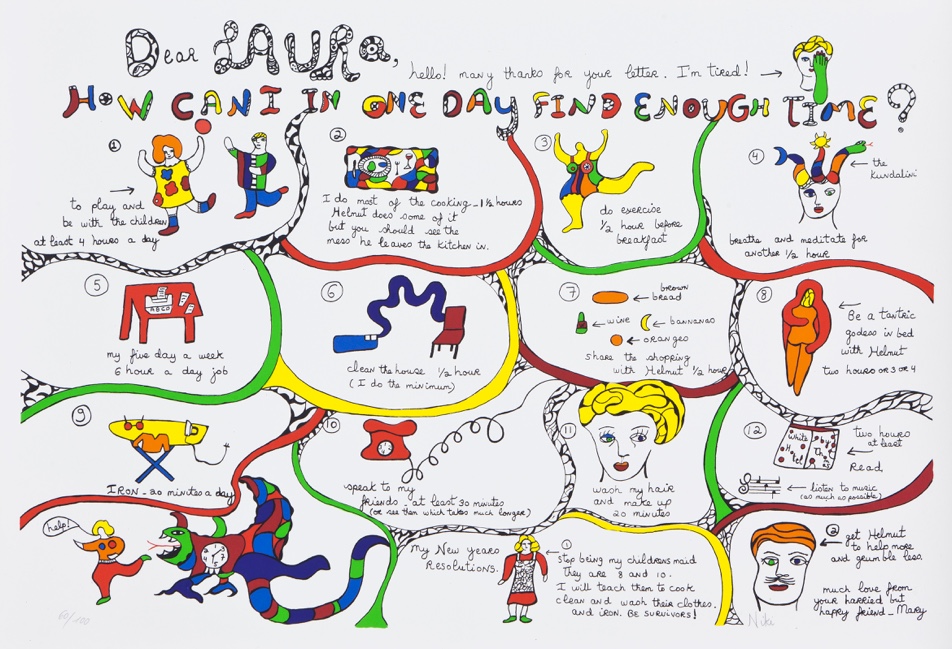 Dear LAURA,
hello! many thanks for your letter. I'm tired!
HOW CAN I IN ONE DAY FIND ENOUGH TIME?
1
to play and
be with the children
at least 4 hours a day
2
I do most of the cooking_1½ hours
Helmut does some of it
but you should see the
mess he leaves the kitchen in.
3
do exercise
½ hour before
breakfast
4
the
Kundalini
breathe and meditate for
another ½ hour
5
ABCD
my five day a week
6 hour a day job
6
clean the house ½ hour
(I do the minimum)
7
brown
bread
wine
bannanas
oranges
share the shopping
with Helmut ½ hour
8
Be a tantric
godess in bed
with Helmut
two hours OR 3 OR 4
9
IRON_20 minutes a day
10
speak to my
friends_at least 30 minutes
(or see them which takes much longer)
11
wash my hair
and make up
20 minutes
12
White
Hotel
by
Tho
two hours
at least
Read
listen to music
(as much as possible)
help!
My New years
Resolutions.
1
stop being my childrens maid
They are 8 and 10.
I will teach them to cook
clean and wash their clothes.
and iRON. BE SURVIVORS!
2
get Helmut
to help more
and grumble less
much love from
your harried but
happy friend_Mary
60/100
Niki